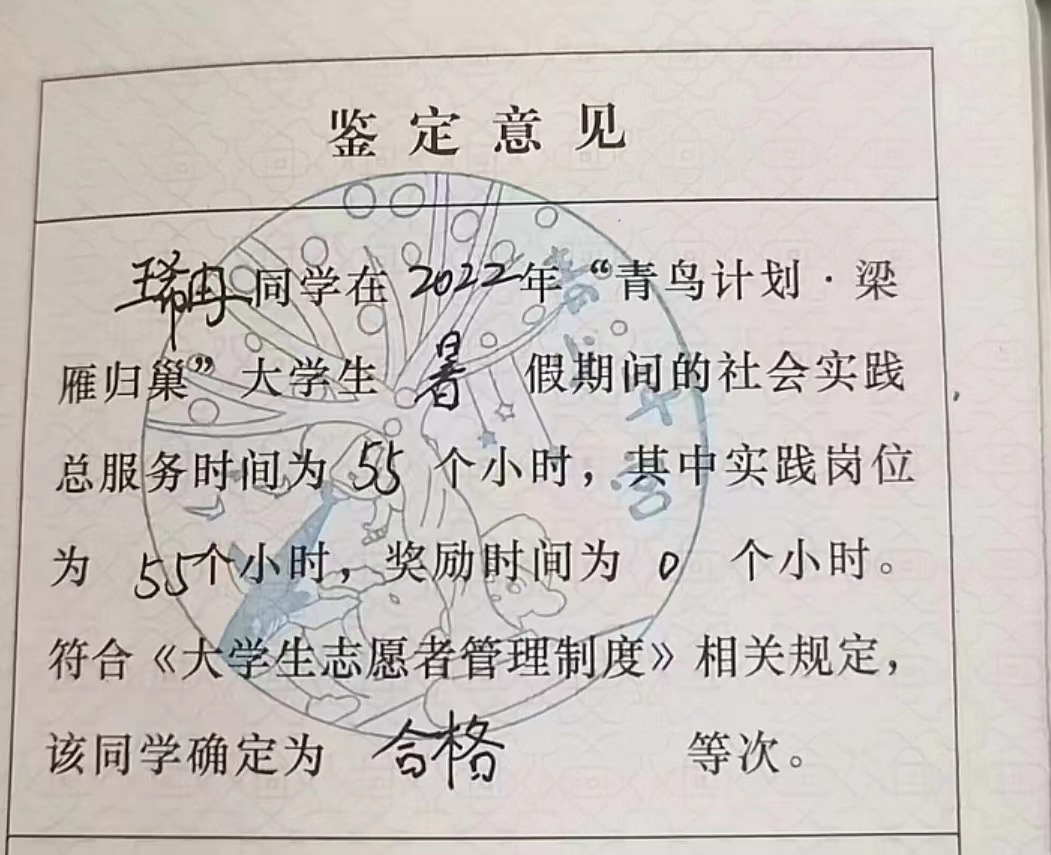 鉴定意见
同学在 2022 年“青鸟计划·梁
雁归巢”大学生 暑 假期间的社会实践
总服务时间为 55 个小时，其中实践岗位
为 55 个小时，奖励时间为 0 个小时。
符合《大学生志愿者管理制度》相关规定，
该同学确定为 合格 等次。